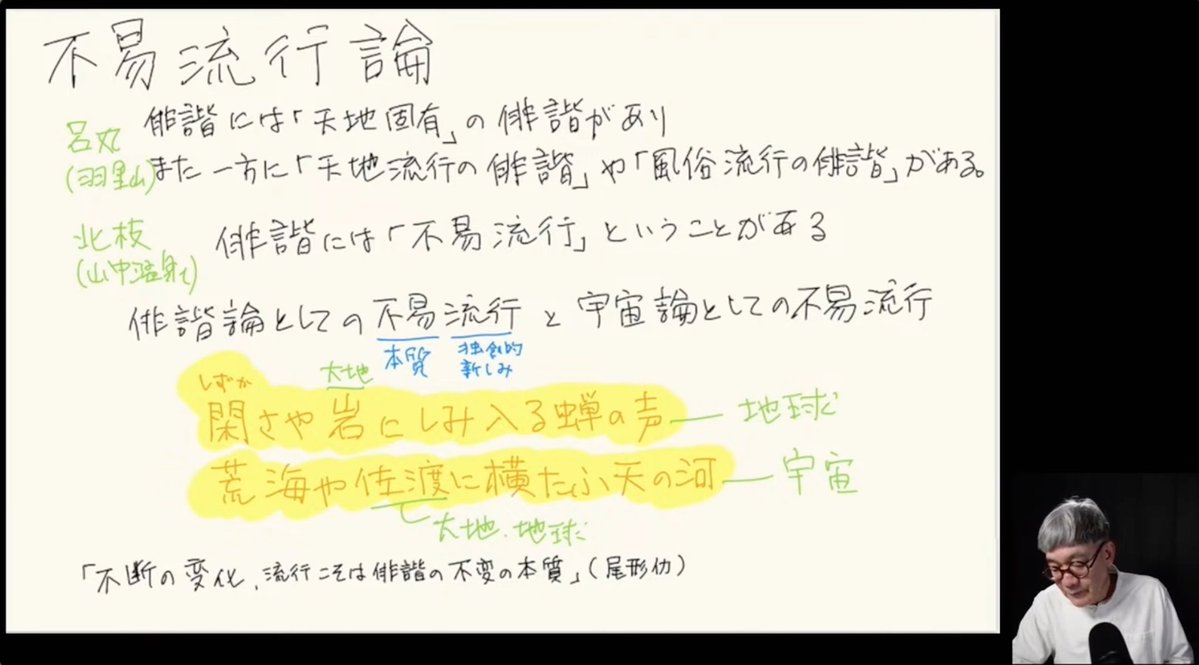 不易流行論
呂丸
(羽黒山)
俳諧には「天地固有」の俳諧があり
また一方に「天地流行の俳諧」や「風俗流行の俳諧」がある。
北枝
(山中温泉)
俳諧には「不易流行」ということがある
俳諧論としての不易流行と宇宙論としての不易流行
本質
独創的
新しみ
大地
しずか
閑さや岩にしみ入る蝉の声
地球
荒海や佐渡に横たふ天の河
宇宙
大地・地球
「不断の変化、流行こそは俳諧の不変の本質」(尾形仂)